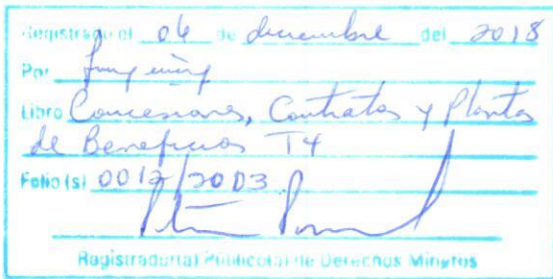 Registrado el 06 de diciembre del 2018
Por
Libro Concesiones, Contratos y Plantas
de Beneficios T4
Folio (s) 0012/2003
Registrador(a) Publico(a) de Derechos Mineros